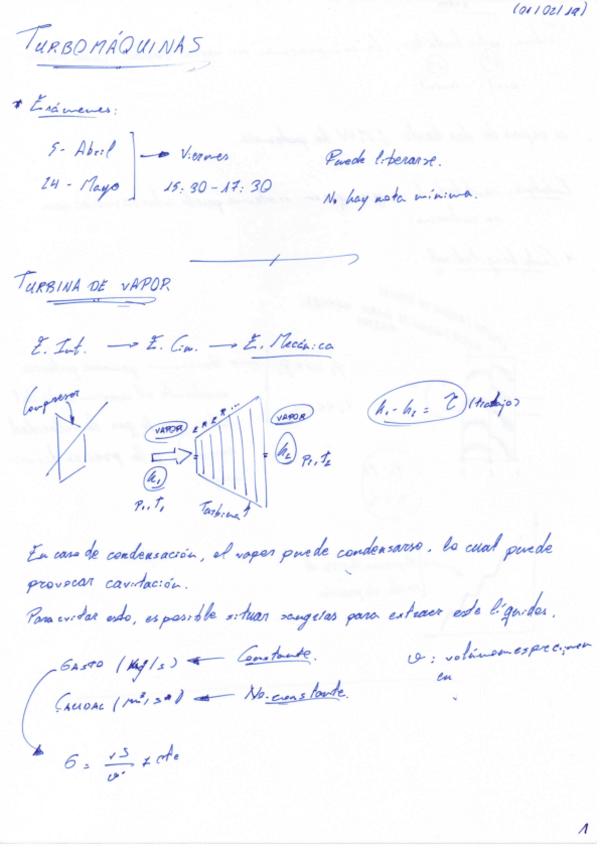 (01/02/19)
TURBOMÁQUINAS
* Exámenes:
5 - Abril
24 - Mayo
→ Viernes
15:30 - 17:30
Puede liberarse.
No hay nota mínima.
TURBINA DE VAPOR
E. Int. → E. Cin. → E. Mecánica
Compresor
VAPOR
h₁
P₁, T₁
E R E R ...
Turbina
VAPOR
h₂
P₂, T₂
h₁ - h₂ = τ (trabajo)
En caso de condensación, el vapor puede condensarse, lo cual puede
provocar cavitación.
Para evitar esto, es posible situar sangrías para extraer este líquidos.
GASTO (Kg/s) ← Constante.
CAUDAL (m³/s) ← No-constante.
v : volúmen
en
G =
1